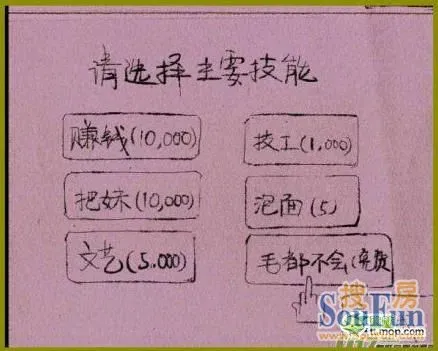 请选择主要技能
赚钱(10,000)
技工(1,000)
把妹(10,000)
泡面(5)
文艺(5.000)
毛都不会(免费
搜房
SouFun
tt.mop.com